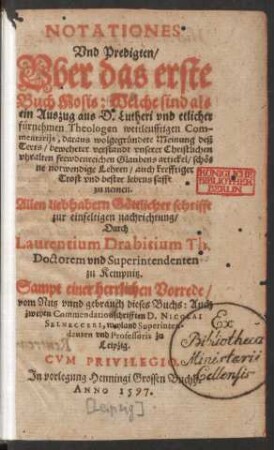 NOTATIONES
Vnd Predigten/
Vber das erste
Buch Mosis; Welche sind als
ein Auszug aus D. Lutheri vnd etlicher
fürnemen Theologen weitleufftigen Com-
mentarijs, daraus wolgegründete Meinung deß
Texts/ bewehrter verstandt vnserer Christlichen
vhralten seewdenreichen Glaubens artickel/ schö-
ne notwendige Lehren/ auch krefftiger
Trost vnd bester lebens safft
zu nemen.
Allen liebhabern Göttlicher schrifft
zur einfeltigen nachrichtung/
Durch
Laurentium Drabitium Th.
Doctorem vnd Superintendenten
zu Kempnitz.
Sampt einer herrlichen Vorrede/
vom Nutz vnnd gebrauch dieses Buchs: Auch
zweyen Commendationschrifften D. NICOLAI
SELNECCERI, weyland Superinten-
denten vnd Professoris zu
Leipzig.
CVM PRIVILEGIO.
In vorlegung Henningi Grossen Buchh.
ANNO 1597.
[Leipzig]
KÖNIGLICHE
BIBLIOTHEK
BERLIN
Ex
Bibliotheca
Ministerii
Cellensis